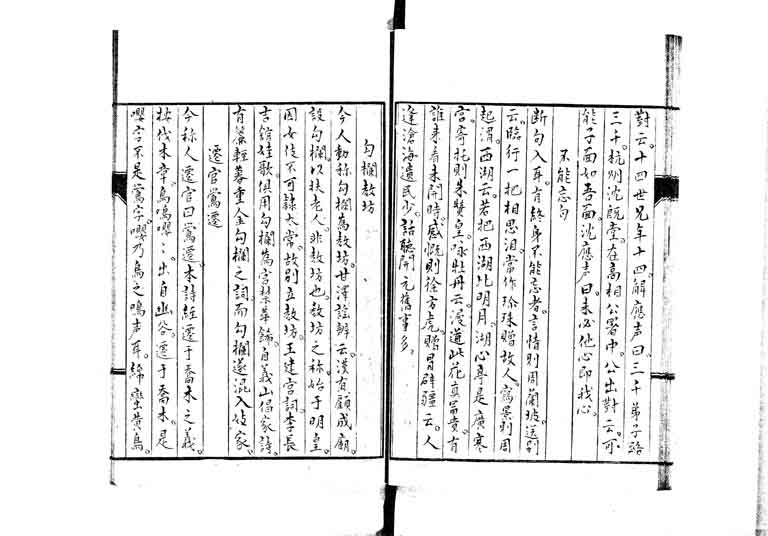 對云。十四世兄年十四。解應声曰。三千弟子路
三千。杭州沈既堂。在高相公署中。公出對云。可
能子面如吾面。沈應声曰。未必他心即我心。
不能忘句
断句入耳。有終身不能忘者。言情則周蘭坡送别
云。臨行一把相思泪。當作珍珠贈故人。寫景則周
起渭。西湖云。若把西湖比明月。湖心亭是廣寒
宫。寄托則朱贊皇。咏牡丹云。漫道此花真富貴。有
誰来看未開時。感慨則徐方虎贈冒辟疆云。人
逢滄海遺民少。話聽開元舊事多。
勾欄教坊
今人動称勾欄為教坊。甘澤謡辨云。漢有顧成廟。
設勾欄。以扶老人。非教坊也。教坊之称。始于明皇。
因女伎不可隷太常。故别立教坊。王建宫詞。李長
吉館娃歌。俱用勾欄為宫禁華飾。自義山倡家詩。
有簾輕幕重金勾欄之詞。而勾欄遂混入妓家。
遷官鶯遷
今称人遷官曰鶯遷。本詩經遷于喬木之義。
按伐木章。鳥鳴嚶嚶。出自幽谷。遷于喬木。是
嚶字不是鶯字。嚶乃鳥之鳴声耳。緜蠻黄鳥。